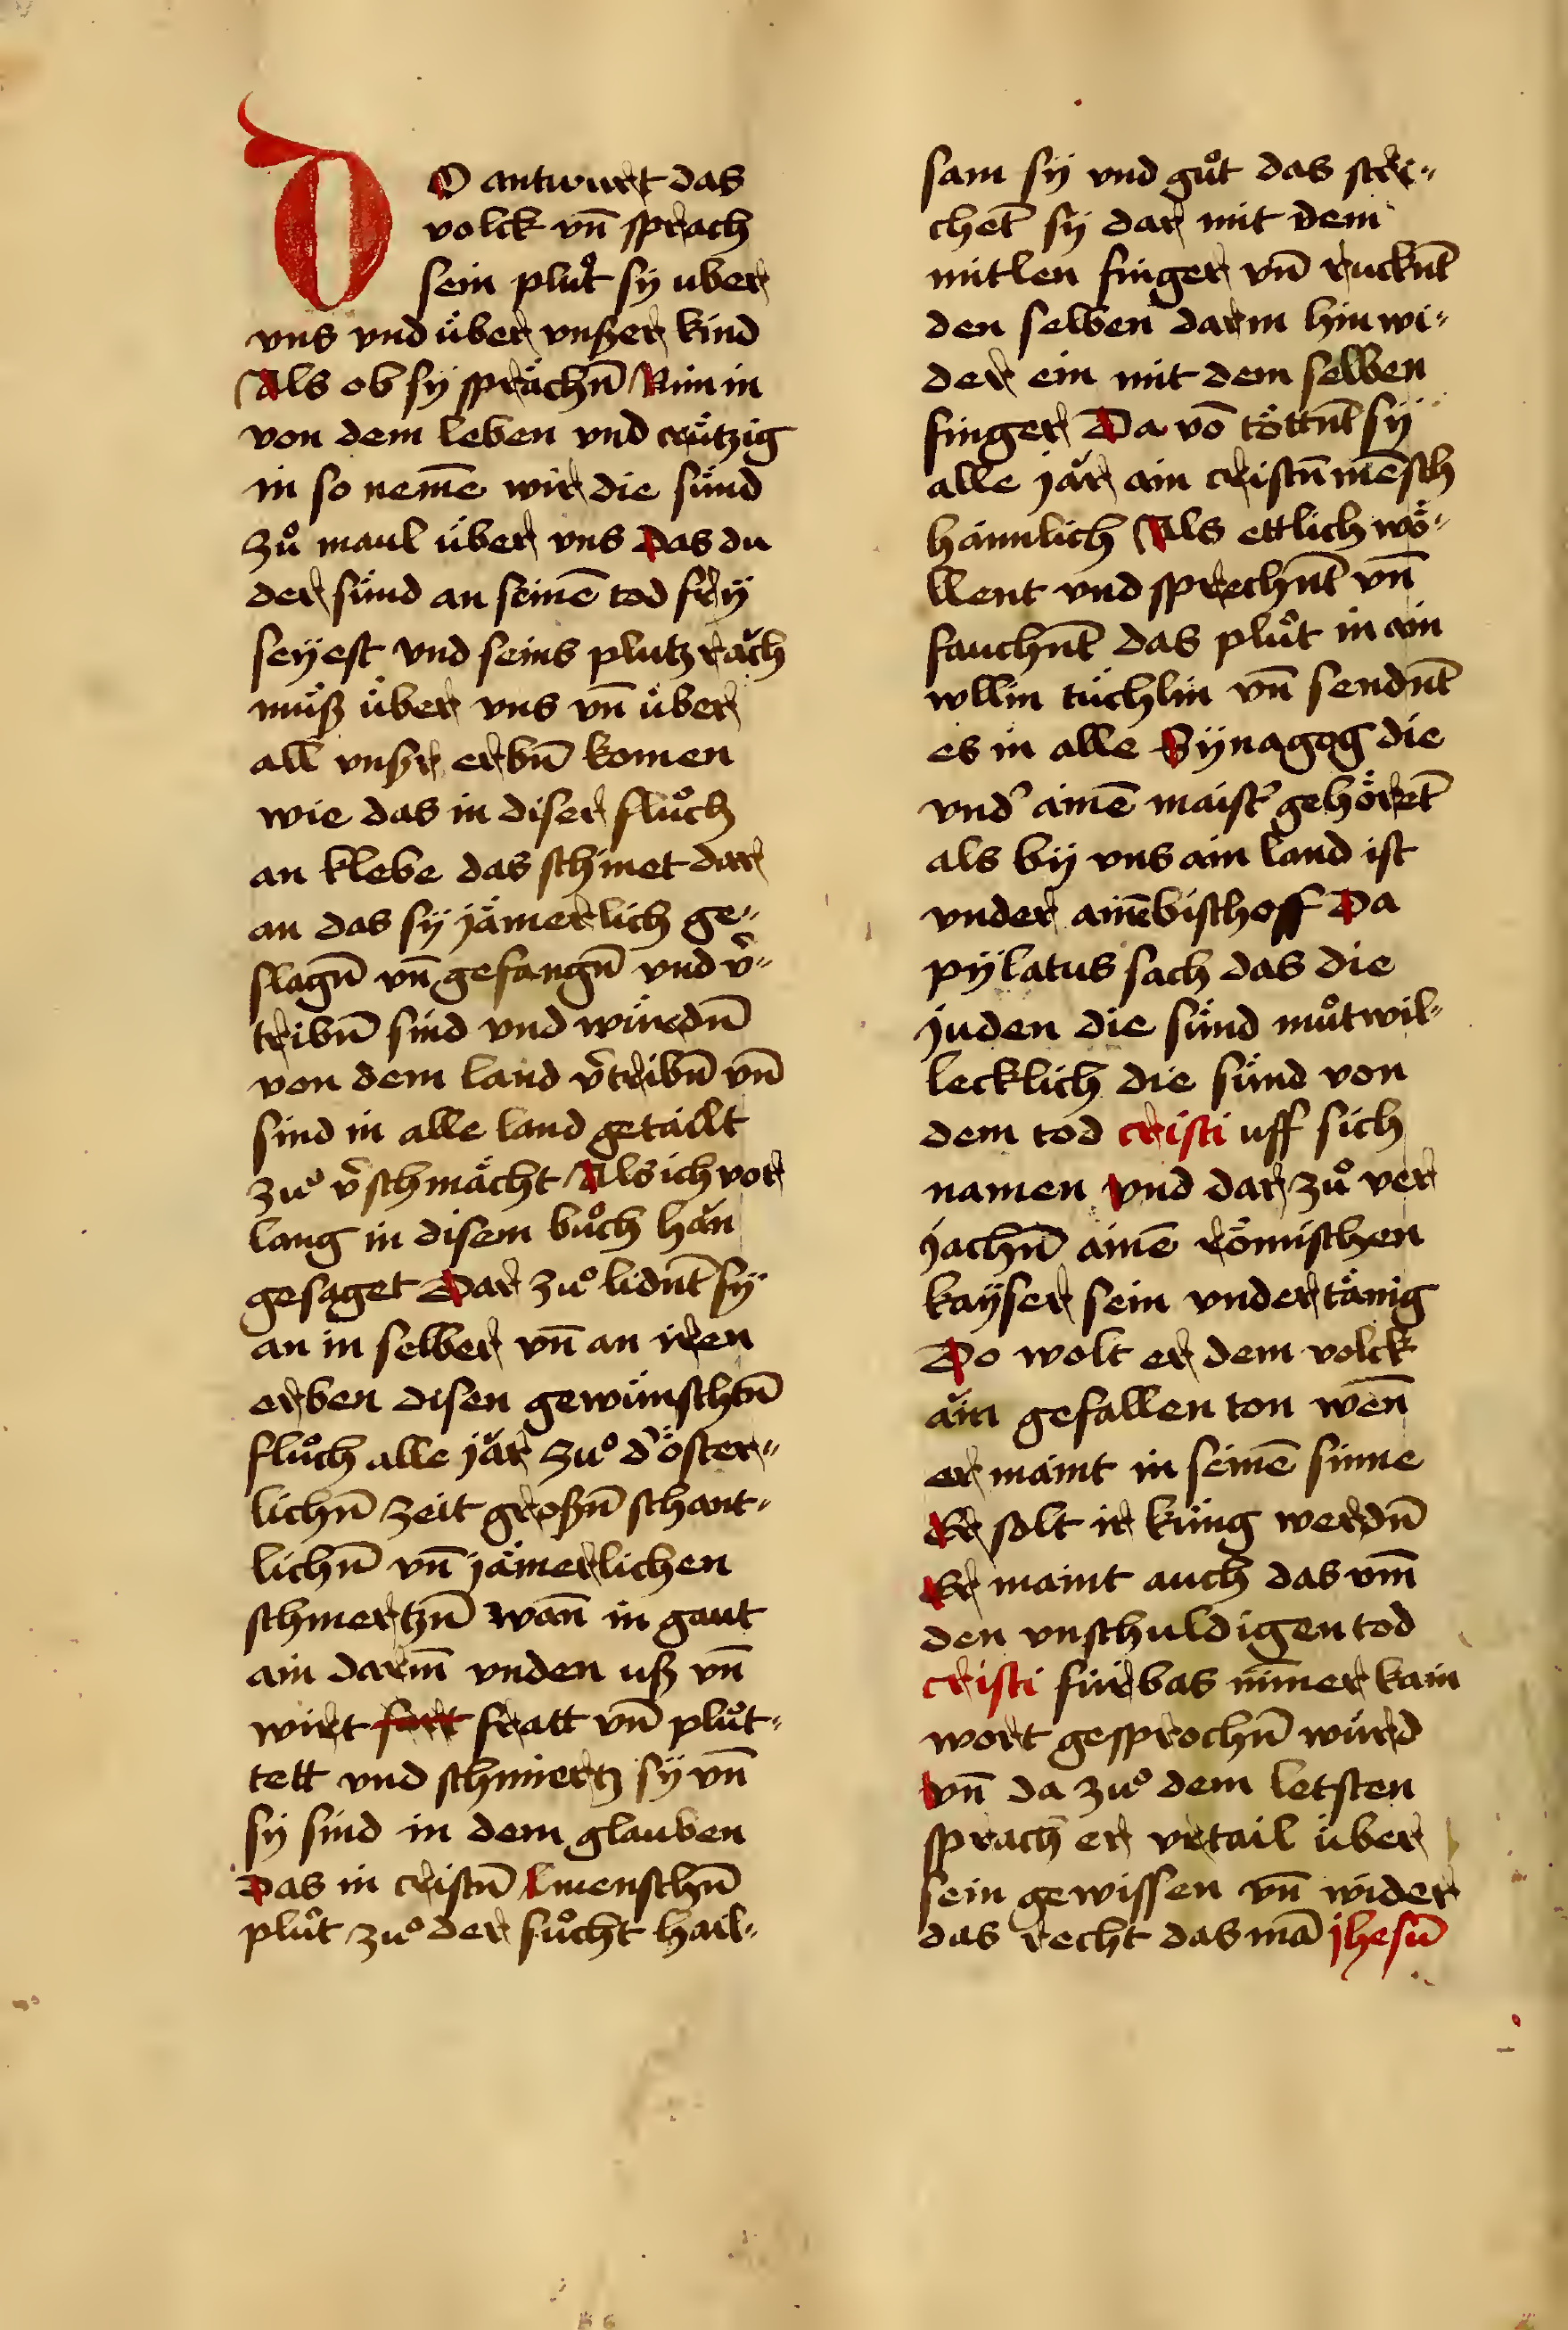 DO antwurt das
volck vn̄ sprach
sein plůt sy uber
vns vnd über vnßer kind
Als ob sy sprächn̄ Nim in
von dem leben vnd crützig
in so nem̄e wir die sünd
zů maul über vns Das du
der sünd an seinē tod fry
seyest vnd seins plutz rǎch
müß über vns vn̄ über
all vnßr erbn̄ komen
wie das in diser flůch
an klebe das schinet dar
an das sy jämerlich ge„
slagn̄ vn̄ gefangn̄ vnd v̄„
tribn̄ sind vnd würdn̄
von dem land v̄tribn̄ vn̄
sind in alle land getailt
zuͦ v̄schmächt Als ich vor
lang in disem bůch hǎn
gesaget Dar zuͦ lidnt̄ sy
an in selber vn̄ an iren
erben disen gewünschtn̄
flůch alle jǎr zuͦ d' öster„
lichn̄ zeit großn̄ schant„
lichn̄ vn̄ jämerlichen
schmertzn̄ wan̄ in gaut
ain darm̄ vnden uß vn̄
wirt fart fratt vn̄ plůt„
tett vnd schmertz sy vn̄
sy sind in dem glauben
Das in cristn̄ lmenschn̄
plůt zuͦ der sůcht hail„
sam sy vnd gůt das stri„
chet̄ sy dar mit dem
mitlen finger vn̄ rucknt̄
den selben darm hin wi„
der ein mit dem selben
finger Da vō töttnt̄ sy
alle jǎr ain cristn̄ mēsch
haimlich Als ettlich wö„
llent vnd sprechnt̄ vn̄
fauchnt̄ das plůt in ain
wllin tüchlin vn̄ sendnt̄
es in alle Synagog die
vnd' ainē maist' gehöret̄
als by vns ain land ist
vnder ainē bischoff Da
pylatus sach das die
juden die sünd můtwil„
lecklich die sünd von
dem tod cristi uff sich
namen vnd dar zů ver
jachn̄ ainē römischen
kayser sein vndertänig
Do wolt er dem volck
ain gefallen ton wen̄
er maint in seinē sinne
Er solt ir küng werdn̄
Er maint auch das vm̄
den vnschuldigen tod
cristi fürbas nim̄er kain
wort gesprochn̄ würd
vn̄ da zuͦ dem letsten
sprach er vrtail über
sein gewissen vn̄ wider
das recht das mā jhesū